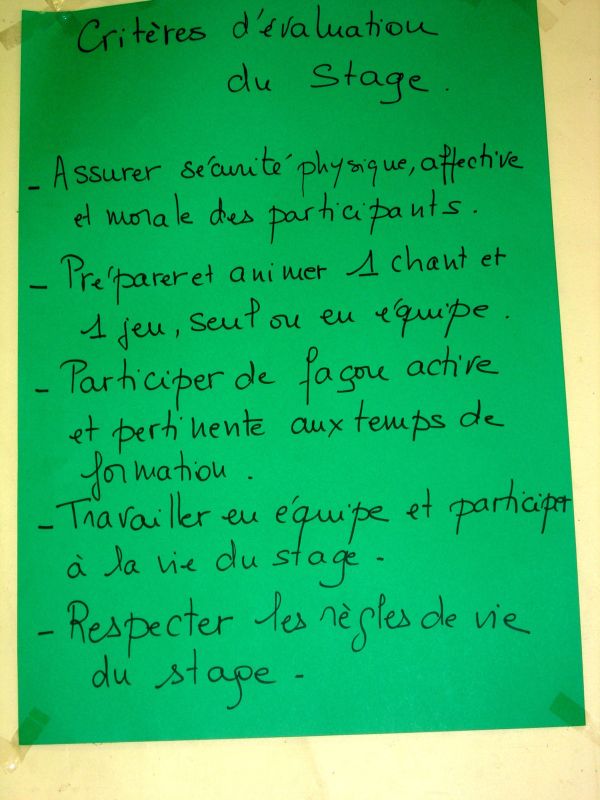 Critères d'évaluation
du Stage.
- Assurer sécurité physique, affective
et morale des participants.
- Préparer et animer 1 chant et
1 jeu, seul ou en équipe.
- Participer de façon active
et pertinente aux temps de
formation.
- Travailler en équipe et participer
à la vie du stage.
- Respecter les règles de vie
du stage.